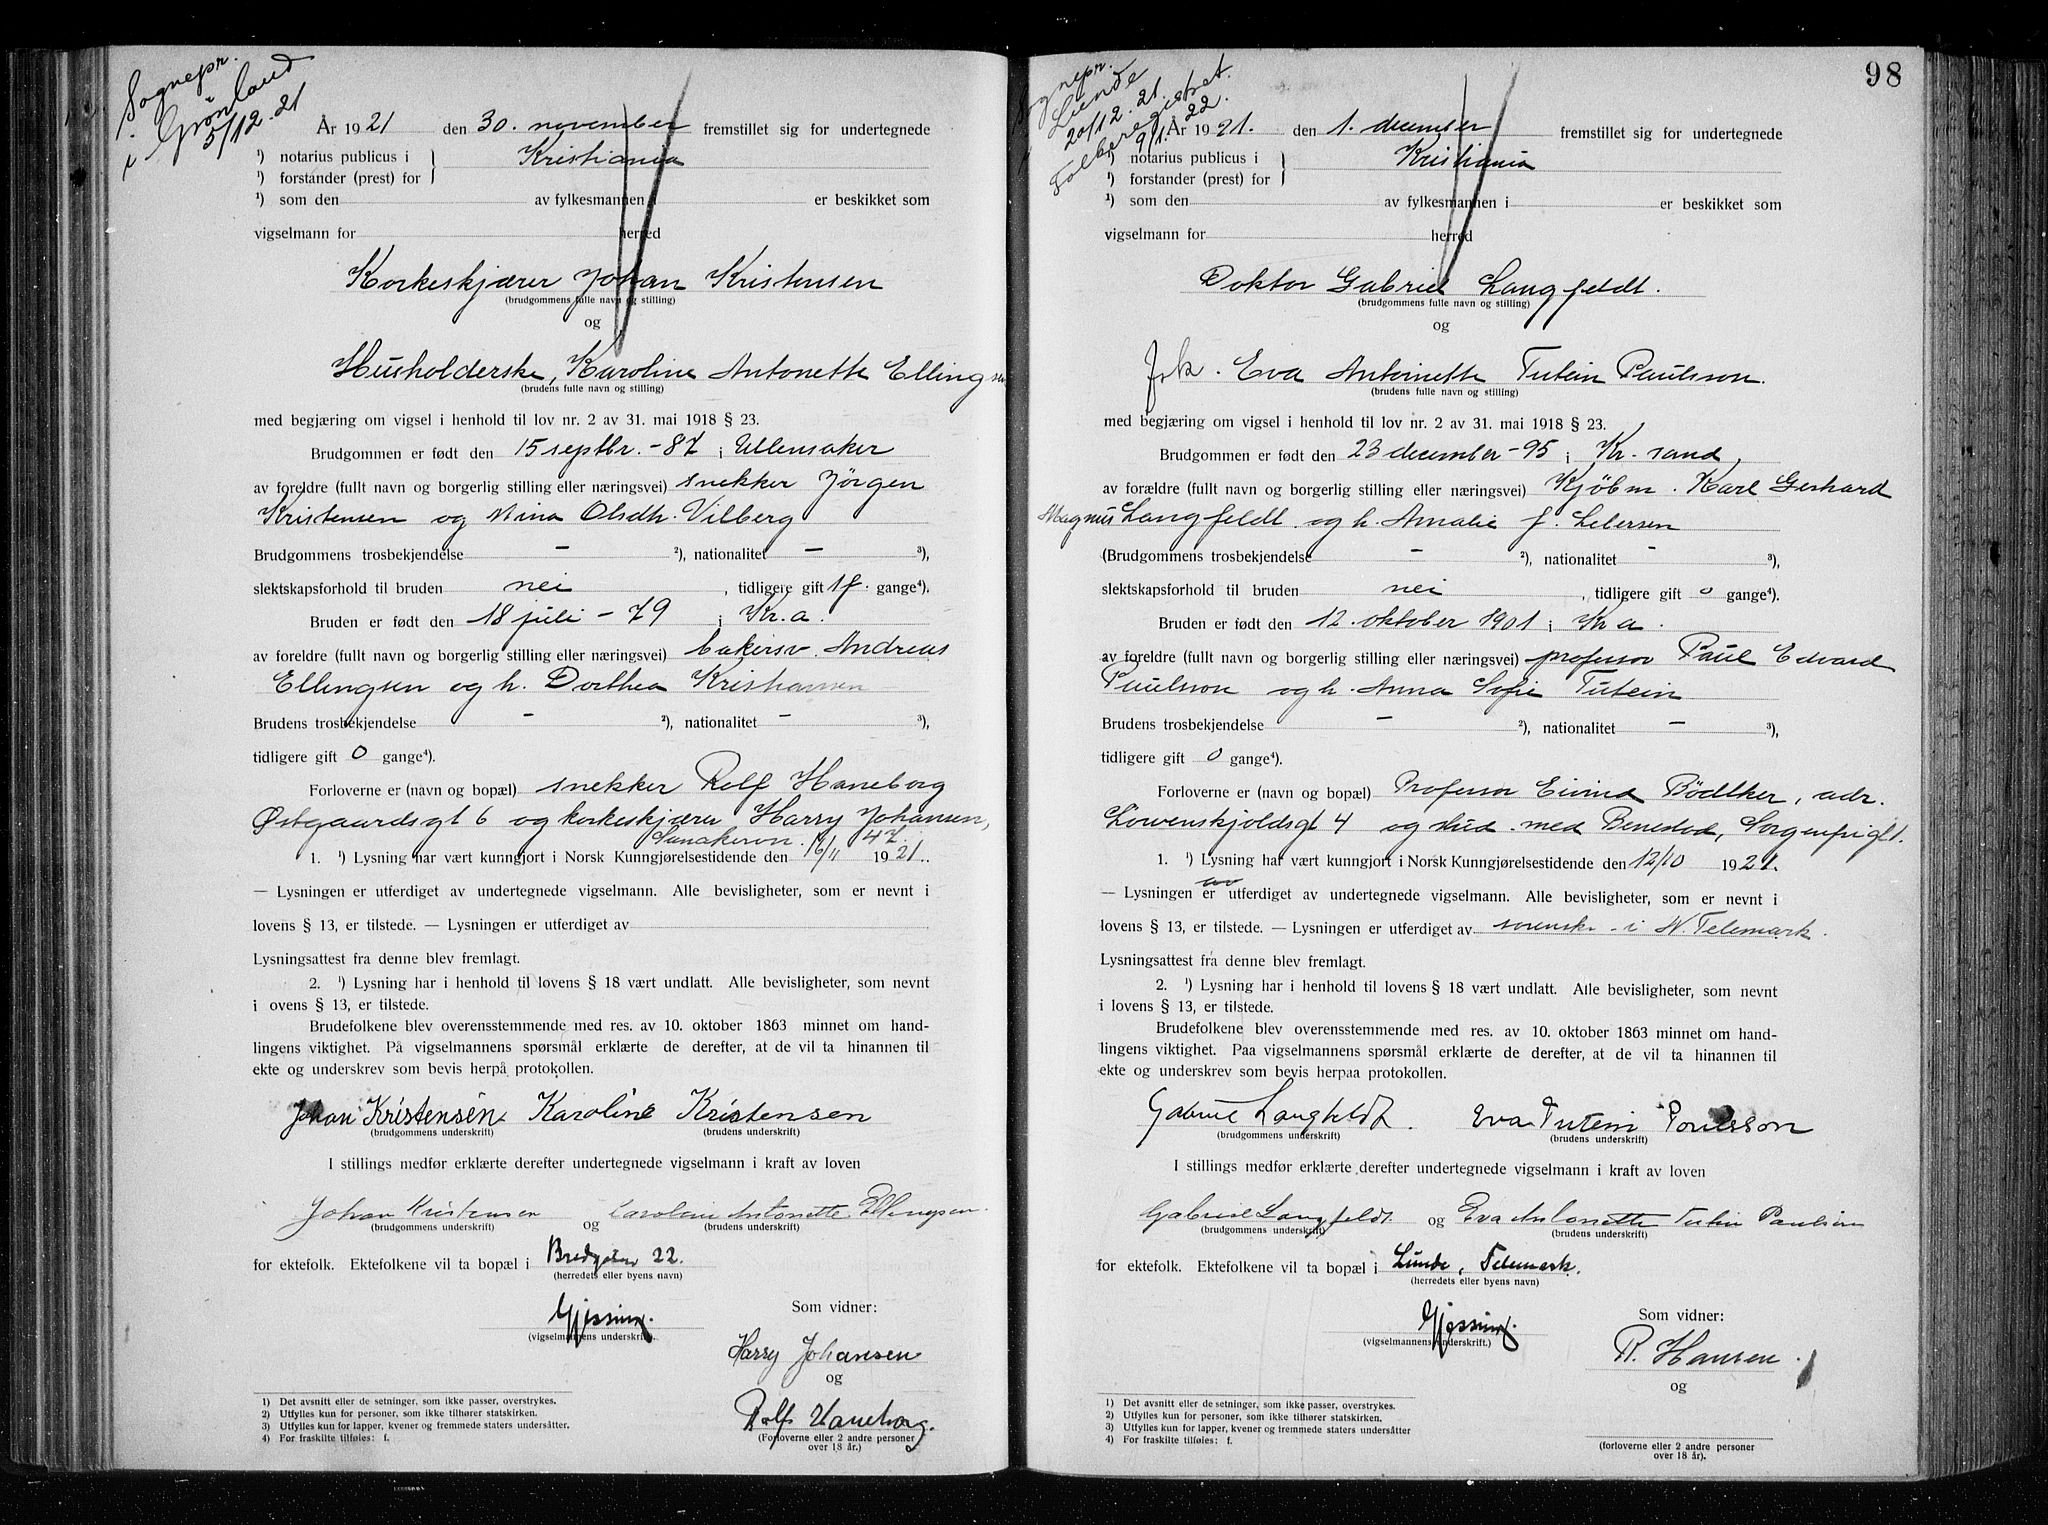 Sognepr.
i Grönland
5/12. 21
År 1921 den 30. november fremstillet sig for undertegnede
¹) notarius publicus i Kristiania
¹) forstander (prest) for
¹) som den av fylkesmannen i er beskikket som
vigselmann for herred
Korkeskjærer Johan Kristensen
(brudgommens fulle navn og stilling)
og
Husholderske, Karoline Antonette Ellingsen
(brudens fulle navn og stilling)
med begjæring om vigsel i henhold til lov nr. 2 av 31. mai 1918 § 23.
Brudgommen er født den 15 septbr. - 87 i Ullensaker
av foreldre (fullt navn og borgerlig stilling eller næringsvei) snekker Jörgen
Kristensen og Nina Olsdh. Vilberg
Brudgommens trosbekjendelse - ²), nationalitet - ³),
slektskapsforhold til bruden nei, tidligere gift 1 f. gange⁴).
Bruden er født den 18 juli - 79 i Kr.a.
av foreldre (fullt navn og borgerlig stilling eller næringsvei) bakersv. Andreas
Ellingsen og h. Dorthea Kristiansen
Brudens trosbekjendelse - ²), nationalitet - ³),
tidligere gift 0 gange⁴).
Forloverne er (navn og bopæl) snekker Rolf Haneborg
Østgaardsgt 6 og korkeskjærer Harry Johansen,
Sannakerвn. 47.
1. ¹) Lysning har vært kunngjort i Norsk Kunngjørelsestidende den 16/11 1921.
— Lysningen er utferdiget av undertegnede vigselmann. Alle bevisligheter, som er nevnt i
lovens § 13, er tilstede. — Lysningen er utferdiget av
Lysningsattest fra denne blev fremlagt.
2. ¹) Lysning har i henhold til lovens § 18 vært undlatt. Alle bevisligheter, som nevnt
i ovens § 13, er tilstede.
Brudefolkene blev overensstemmende med res. av 10. oktober 1863 minnet om hand-
lingens viktighet. På vigselmannens spørsmål erklærte de derefter, at de vil ta hinannen til
ekte og underskrev som bevis herpå protokollen.
Johan Kristensen Karoline Kristensen
(brudgommens underskrift) (brudens underskrift)
I stillings medfør erklærte derefter undertegnede vigselmann i kraft av loven
Johan Kristensen og Caroline Antonette Ellingsen.
(brudgommens underskrift) (brudens underskrift)
for ektefolk. Ektefolkene vil ta bopæl i Bredgaten 22.
(herredets eller byens navn)
Gjessing.
(vigselmannens underskrift)
Som vidner:
Harry Johansen
og
Rolf Haneborg.
(Forloverne eller 2 andre personer
over 18 år.)
1) Det avsnitt eller de setninger, som ikke passer, overstrykes.
2) Utfylles kun for personer, som ikke tilhører statskirken.
3) Utfylles kun for lapper, kvener og fremmede staters undersåtter.
4) For fraskilte tilføies: f.
98
Sognepr.
Lunde
20/12. 21.
Folkeregistret
9/1. 22.
År 1921. den 1. december fremstillet sig for undertegnede
¹) notarius publicus i Kristiania
¹) forstander (prest) for
¹) som den av fylkesmannen i er beskikket som
vigselmann for herred
Doktor Gabriel Langfeldt.
(brudgommens fulle navn og stilling)
og
frk. Eva Antoinette Tutein Paulsson.
(brudens fulle navn og stilling)
med begjæring om vigsel i henhold til lov nr. 2 av 31. mai 1918 § 23.
Brudgommen er født den 23 december - 95 i Kr. sand,
av forældre (fullt navn og borgerlig stilling eller næringsvei) Kjöbm. Karl Gerhard
Magnus Langfeldt og h. Amalie f. Petersen
(Brudgommens trosbekjendelse - ²), nationalitet - ³),
slektskapsforhold til bruden nei, tidligere gift 0 gange⁴).
Bruden er født den 12. oktober 1901 i Kr a.
av foreldre (fullt navn og borgerlig stilling eller næringsvei) professor Paul Edvard
Paulsson og h. Anna Sofie Tutein
Brudens trosbekjendelse - ²), nationalitet - ³),
tidligere gift 0 gange⁴).
Forloverne er (navn og bopæl) Professor Eivind Bödtker, adr.
Löwenskjoldsgt 4 og stud. med Benestad, Sorgenfrigt.
1. ¹) Lysning har vært kunngjort i Norsk Kunngjørelsestidende den 12/10 1921.
— Lysningen er utferdiget av undertegnede vigselmann. Alle bevisligheter, som er nevnt i
lovens § 13, er tilstede. — Lysningen er utferdiget av sorenskr. i N. Telemark.
Lysningsattest fra denne blev fremlagt.
2. ¹) Lysning har i henhold til lovens § 18 vært undlatt. Alle bevisligheter, som nevnt
i lovens § 13, er tilstede.
Brudefolkene blev overensstemmende med res. av 10. oktober 1863 minnet om hand-
lingens viktighet. Paa vigselmannens spørsmål erklærte de derefter, at de vil ta hinannen til
ekte og underskrev som bevis herpaa protokollen.
Gabriel Langfeldt. Eva Tutein Poulsson
(brudgommens underskrift) (brudens underskrift)
I stillings medfør erklærte derefter undertegnede vigselmann i kraft av loven
Gabriel Langfeldt og Eva Antonette Tutein Paulsson
(brudgommens underskrift) (brudens underskrift)
for ektefolk. Ektefolkene vil ta bopæl i Lunde, Telemark.
(herredets eller byens navn)
Gjessing.
(vigselmannens underskrift.)
Som vidner:
R. Hansen.
og
(forloverne eller 2 andre personer
over 18 år).
1) Det avsnitt eller de setninger, som ikke passer, overstrykes.
2) Utfylles kun for personer, som ikke tilhører statskirken.
3) Utfylles kun for lapper, kvener og fremmede staters undersåtter
4) For fraskilte tilføies: f.